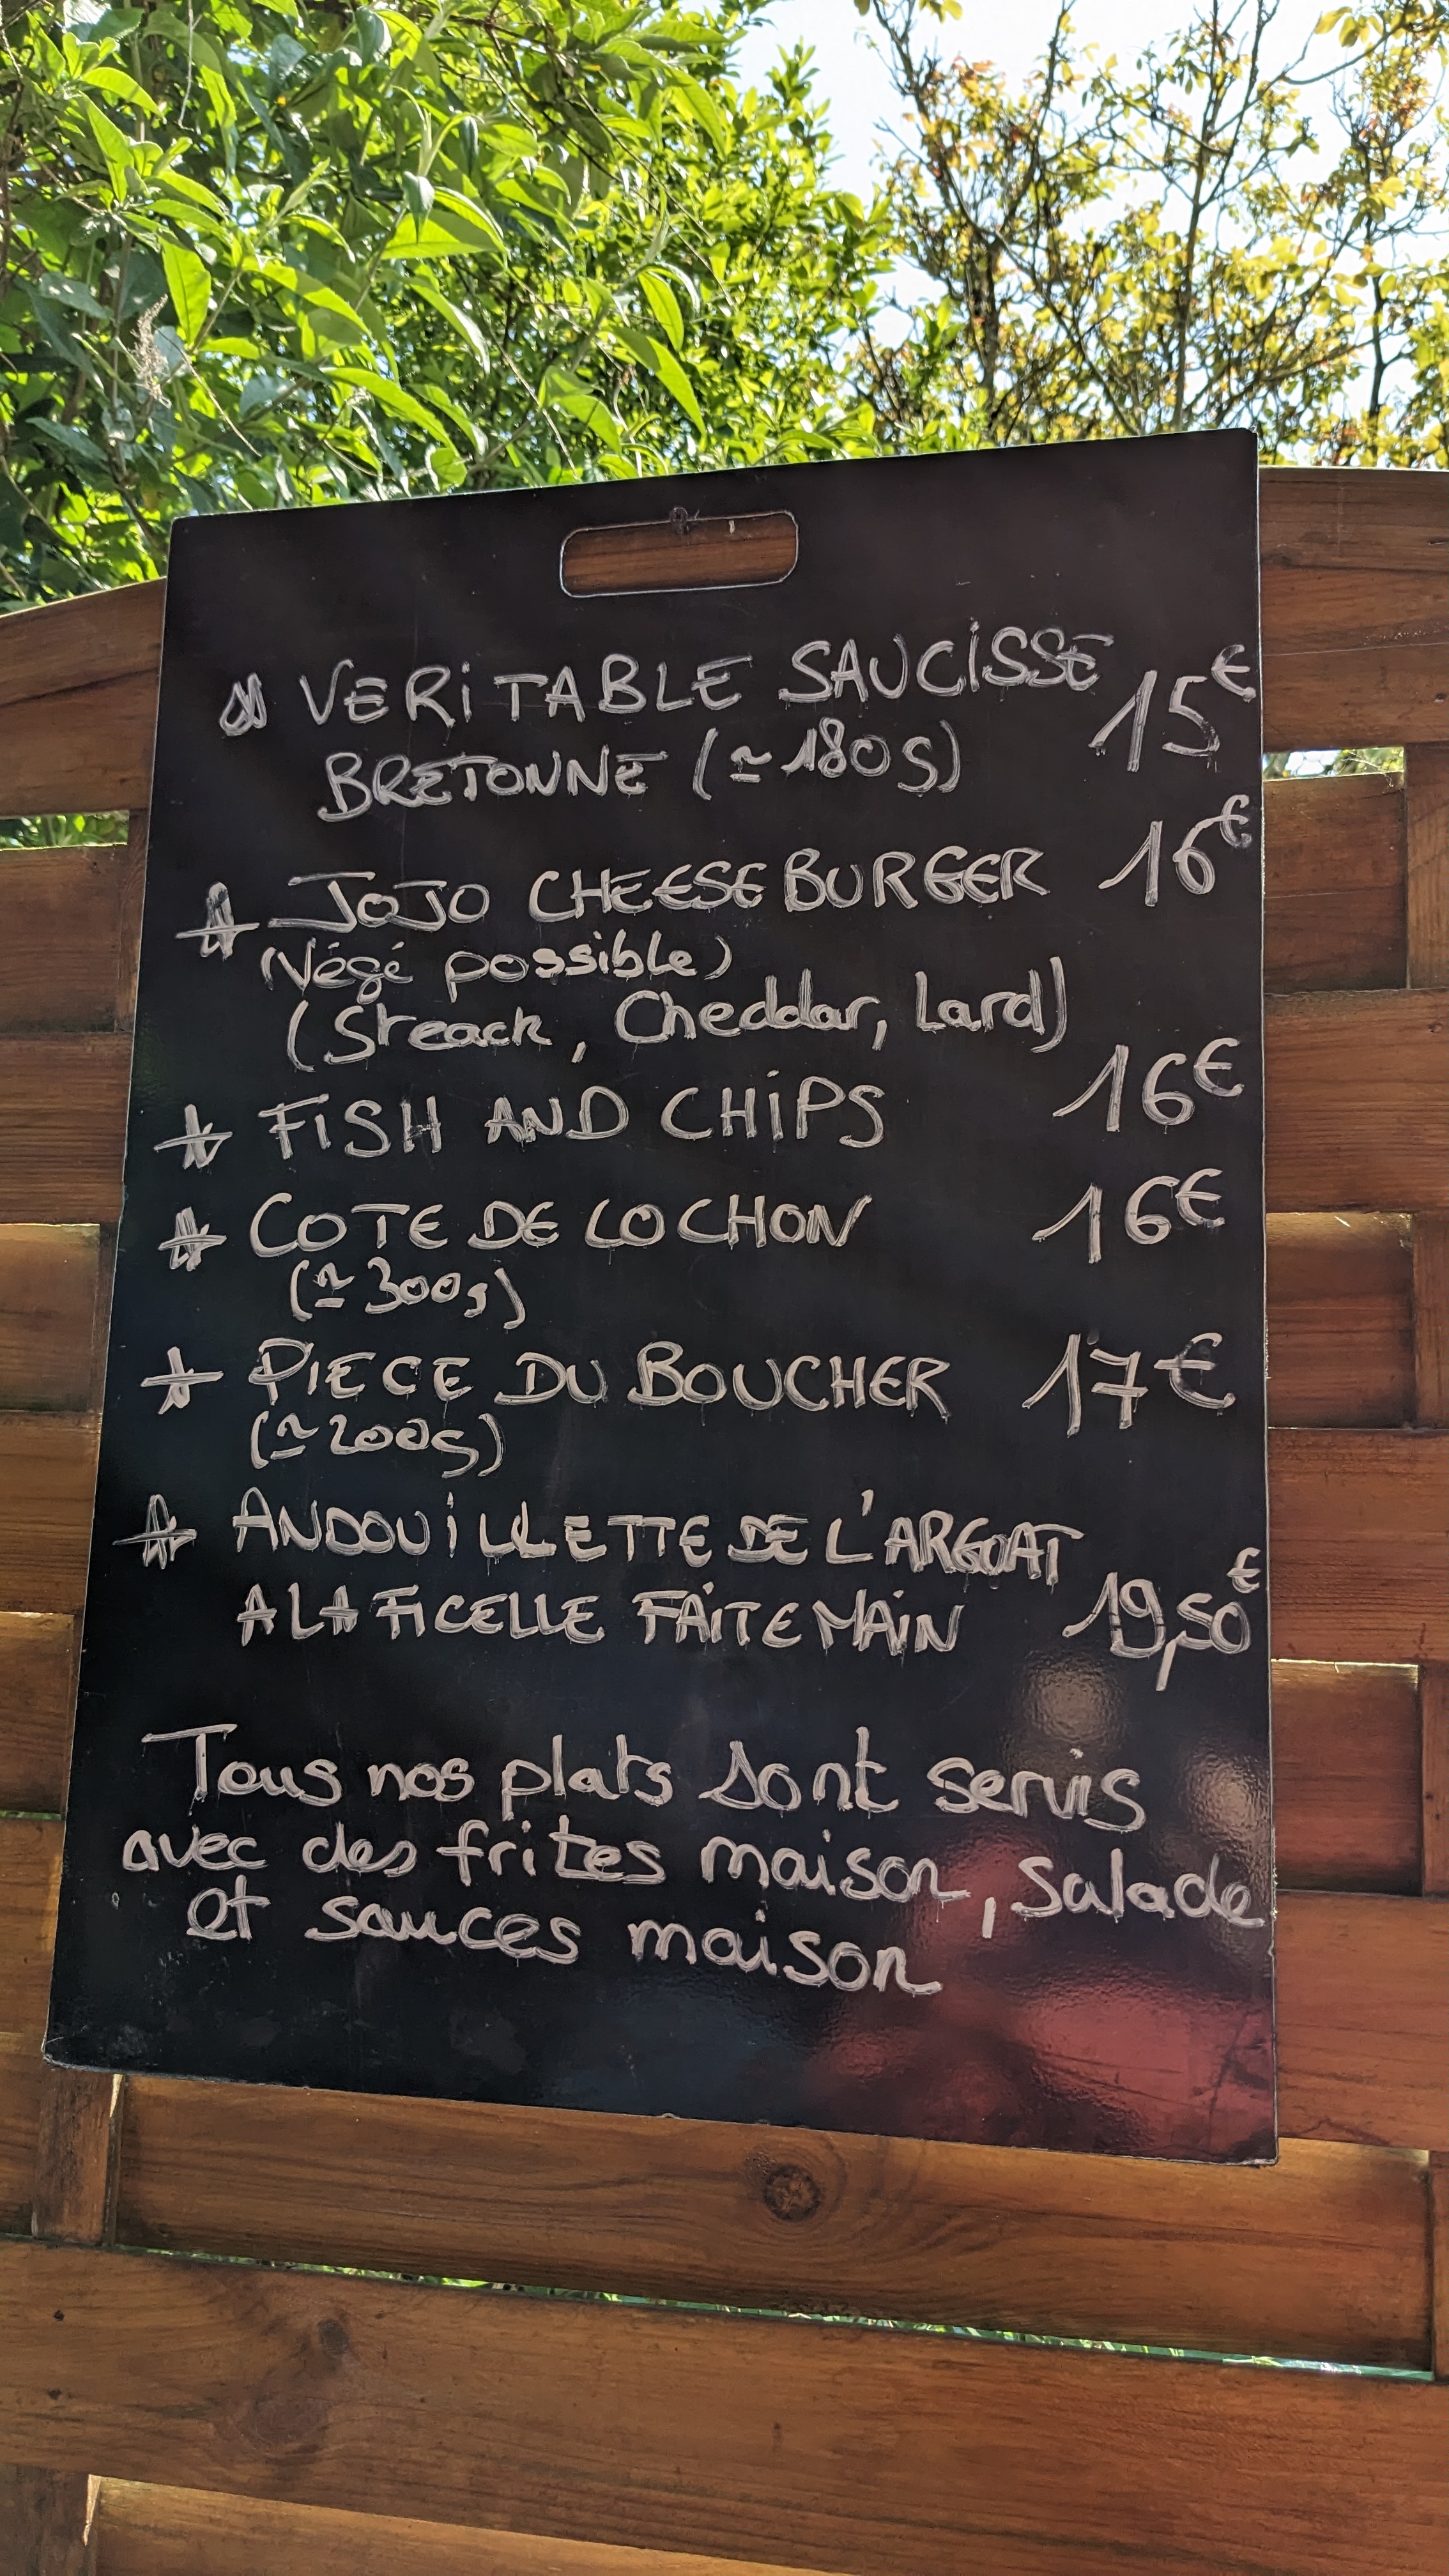 VERITABLE SAUCISSE 15€
BRETONNE (≃180g)
JOJO CHEESEBURGER 16€
(Végé possible)
(Steack, Cheddar, Lard)
FISH AND CHIPS 16€
COTE DE COCHON 16€
(≃300g)
PIECE DU BOUCHER 17€
(≃200g)
ANDOUILLETTE DE L'ARGOAT
A LA FICELLE FAITE MAIN 19,50€
Tous nos plats sont servis
avec des frites maison, salade
et sauces maison